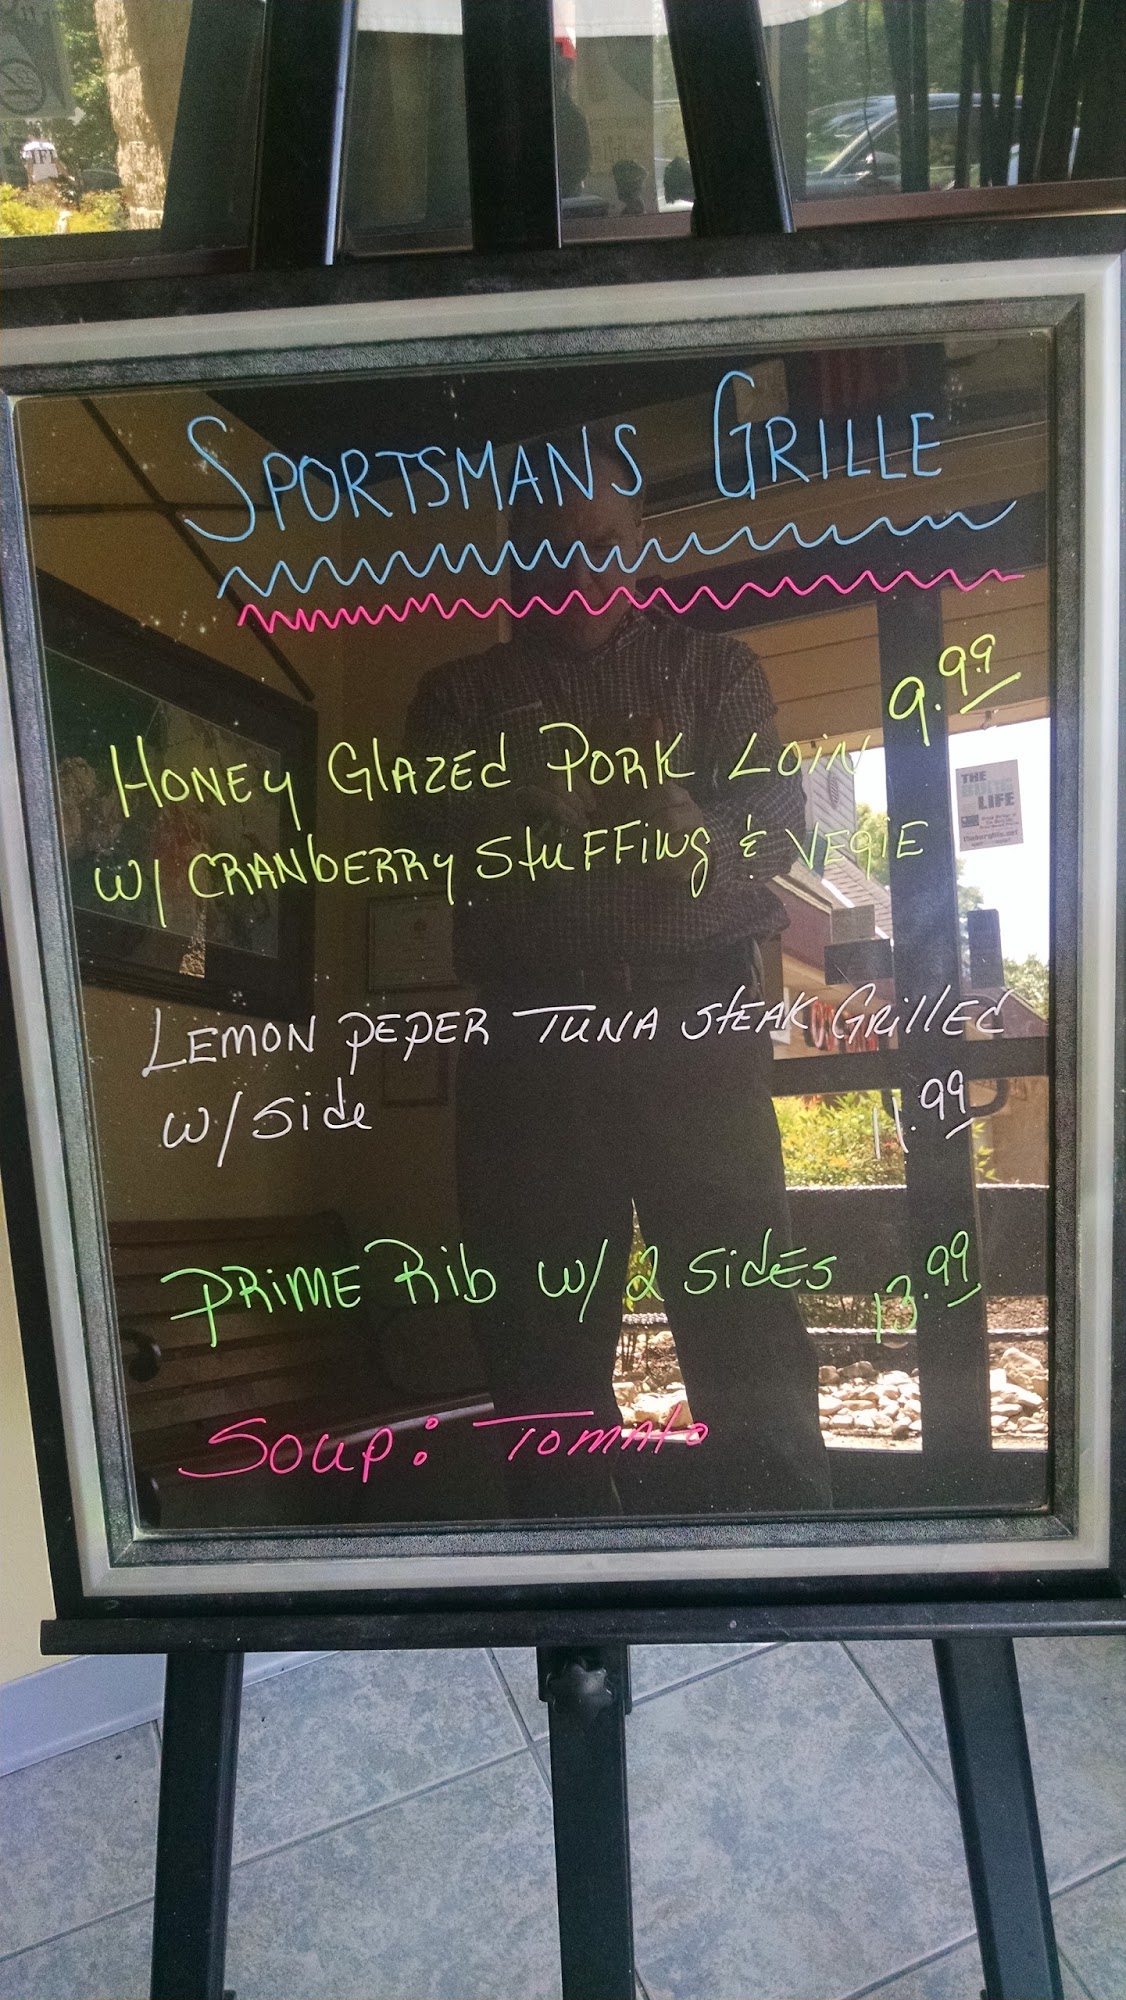 SPORTSMANS GRILLE
HONEY GLAZED PORK LOIN 9.99
W/ CRANBERRY STUFFING & VEGIE
LEMON PEPER TUNA STEAK GRILLED
W/SIDE 11.99
PRIME RIB W/ 2 SIDES 13.99
SOUP: TOMATO
THE
LIFE